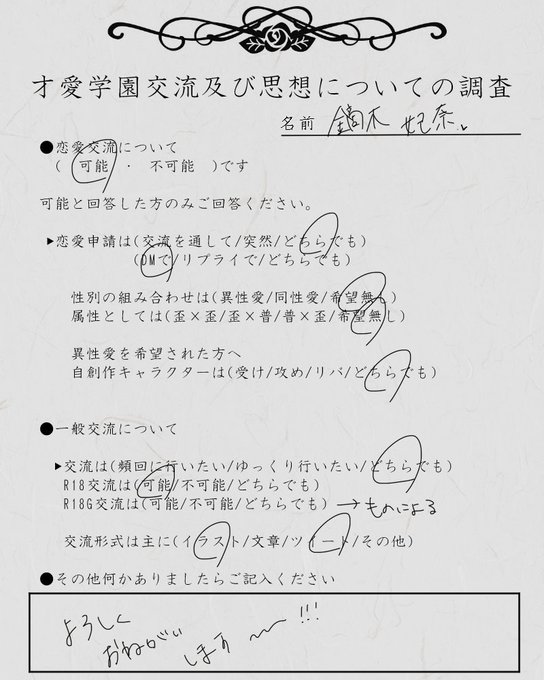 才愛学園交流及び思想についての調査
名前 鏑木 妃奈
●恋愛交流について
( 可能 ・ 不可能 )です
可能と回答した方のみご回答ください。
▶恋愛申請は(交流を通して/突然/どちらでも)
(DMで/リプライで/どちらでも)
性別の組み合わせは(異性愛/同性愛/希望無し)
属性としては(歪×歪/歪×普/普×歪/希望無し)
異性愛を希望された方へ
自創作キャラクターは(受け/攻め/リバ/どちらでも)
●一般交流について
▶交流は(頻回に行いたい/ゆっくり行いたい/どちらでも)
R18交流は(可能/不可能/どちらでも)
R18G交流は(可能/不可能/どちらでも) →ものによる
交流形式は主に(イラスト/文章/ツイート/その他)
●その他何かありましたらご記入ください
よろしく
おねがい
します〜!!!